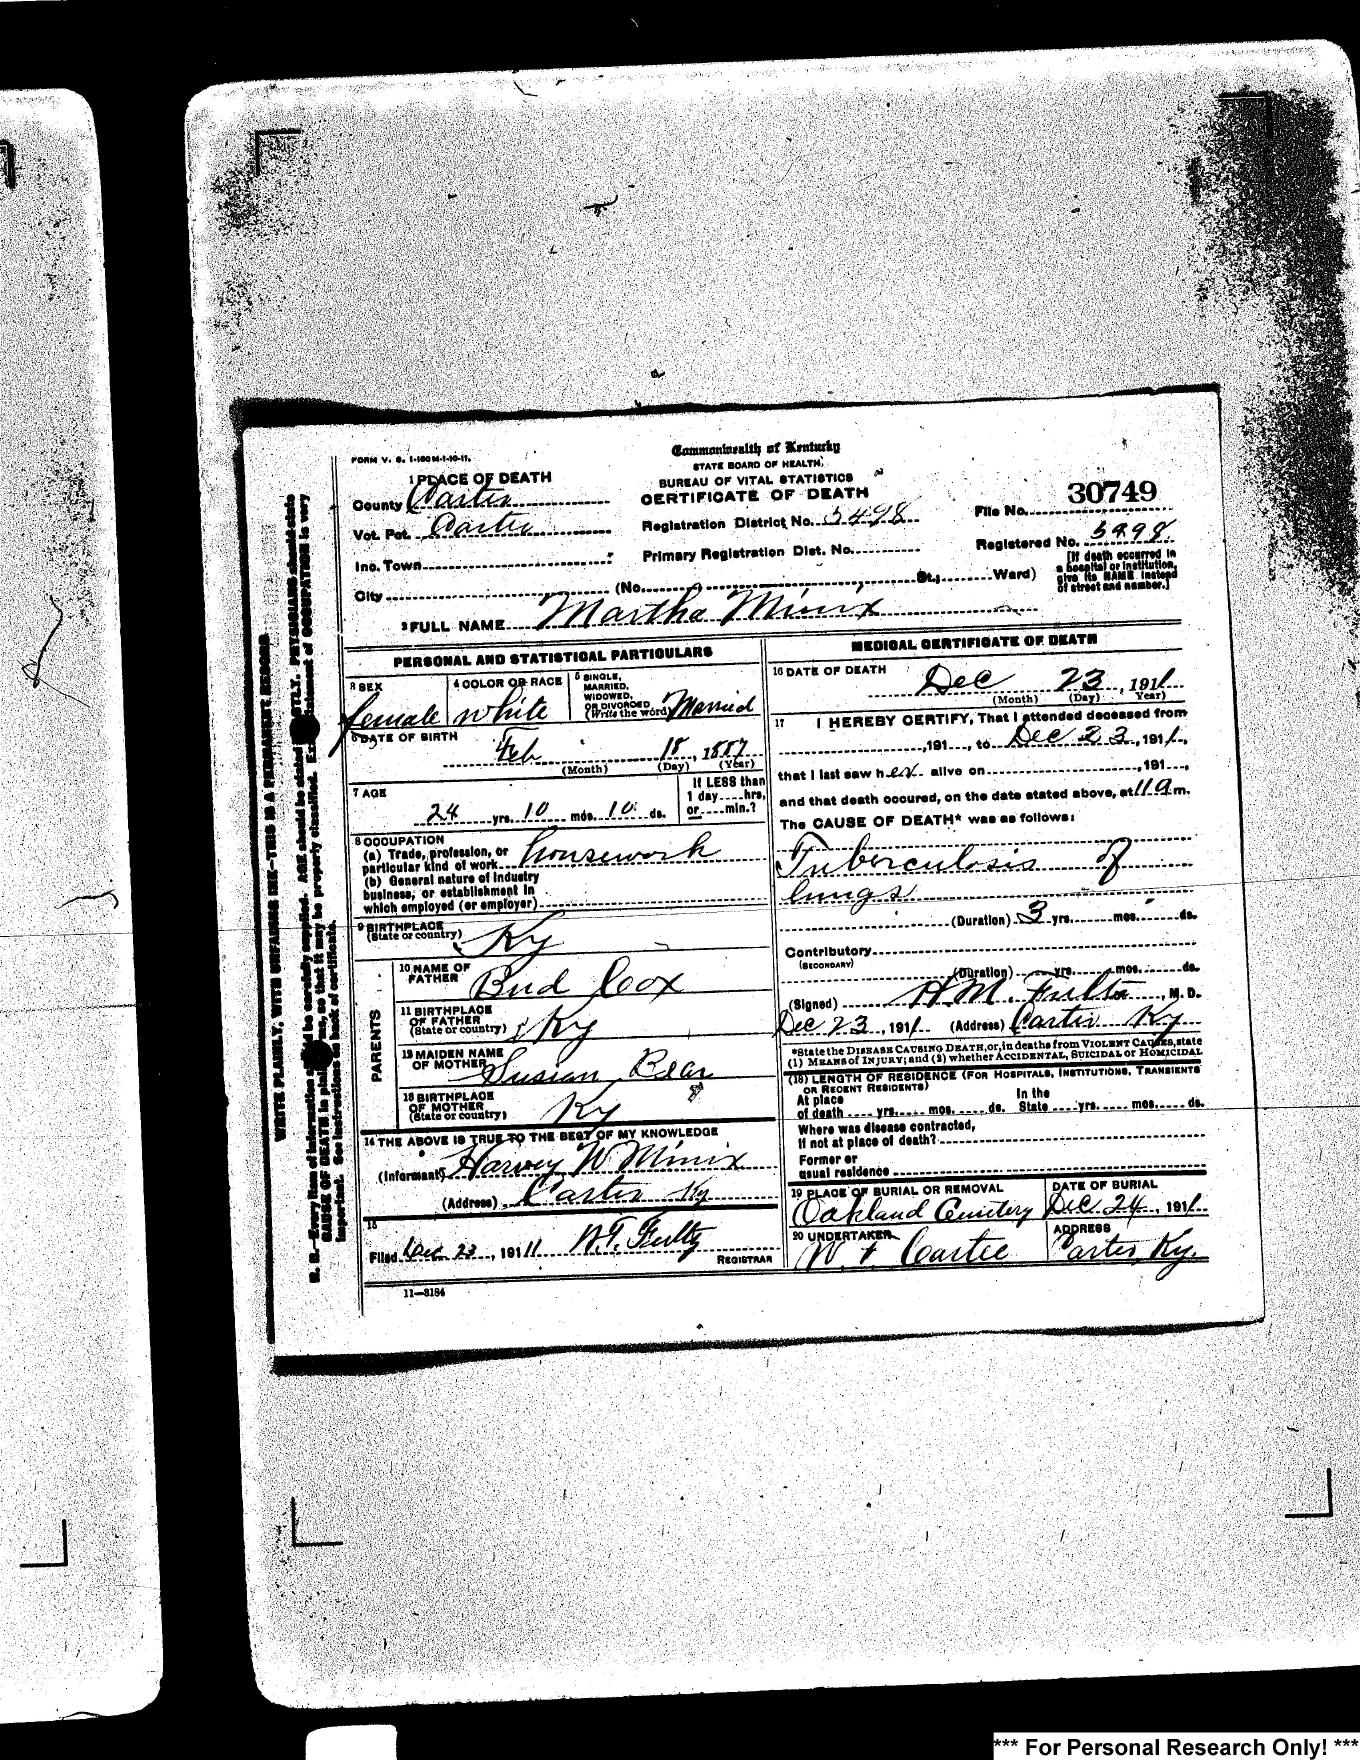 FORM V. S. 1-150M-1-10-11.
Commonwealth of Kentucky
STATE BOARD OF HEALTH,
BUREAU OF VITAL STATISTICS
CERTIFICATE OF DEATH
1 PLACE OF DEATH
County Carter
Vot. Pct. Carter
Inc. Town
City
(No. St.; Ward)
Registration District No. 5498
Primary Registration Dist. No.
30749
File No.
Registered No. 5498
[If death occurred in
a hospital or institution,
give its NAME instead
of street and number.]
2 FULL NAME Martha Minix
PERSONAL AND STATISTICAL PARTICULARS
3 SEX
female
4 COLOR OR RACE
white
5 SINGLE,
MARRIED,
WIDOWED,
OR DIVORCED
(Write the word) Married
6 DATE OF BIRTH
Feb 18, 1887
(Month) (Day) (Year)
7 AGE
24 yrs. 10 mos. 10 ds.
If LESS than
1 day hrs,
or min.?
8 OCCUPATION
(a) Trade, profession, or
particular kind of work housework
(b) General nature of industry
business, or establishment in
which employed (or employer)
9 BIRTHPLACE
(State or country) Ky
PARENTS
10 NAME OF
FATHER Bud Cox
11 BIRTHPLACE
OF FATHER
(State or country) Ky
12 MAIDEN NAME
OF MOTHER Susian Bear
13 BIRTHPLACE
OF MOTHER
(State or country) Ky
14 THE ABOVE IS TRUE TO THE BEST OF MY KNOWLEDGE
(Informant) Harvey W Minix
(Address) Carter Ky
15
Filed Dec 23, 1911 W.T. Fultz
REGISTRAR
11-3184
MEDICAL CERTIFICATE OF DEATH
16 DATE OF DEATH
Dec 23, 1911
(Month) (Day) Year)
17 I HEREBY CERTIFY, That I attended deceased from
,191 , to Dec 23, 1911,
that I last saw her alive on ,191 ,
and that death occured, on the date stated above, at 11 a m.
The CAUSE OF DEATH* was as follows:
Tuberculosis of
lungs
(Duration) 3 yrs. mos. ds.
Contributory
(SECONDARY)
(Duration) yrs. mos. ds.
(Signed) H.M. Fultz, M. D.
Dec 23, 1911 (Address) Carter Ky
*State the DISEASE CAUSING DEATH, or, in deaths from VIOLENT CAUSES, state
(1) MEANS of INJURY; and (2) whether ACCIDENTAL, SUICIDAL or HOMICIDAL
(18) LENGTH OF RESIDENCE (FOR HOSPITALS, INSTITUTIONS, TRANSIENTS
OR RECENT RESIDENTS)
At place In the
of death yrs. mos. ds. State yrs. mos. ds.
Where was disease contracted,
If not at place of death?
Former or
usual residence
19 PLACE OF BURIAL OR REMOVAL
Oakland Cemetery
DATE OF BURIAL
Dec. 24, 1911
20 UNDERTAKER
W. F Cartee
ADDRESS
Carter, Ky.
WRITE PLAINLY, WITH UNFADING INK-THIS IS A PERMANENT RECORD
N. B.-Every item of information be carefully supplied. AGE should be stated TLY. PHYSICIANS should state
CAUSE OF DEATH in so that it may be properly classified. statement of OCCUPATION is very
important. See instructions on back of certificate.
*** For Personal Research Only! ***